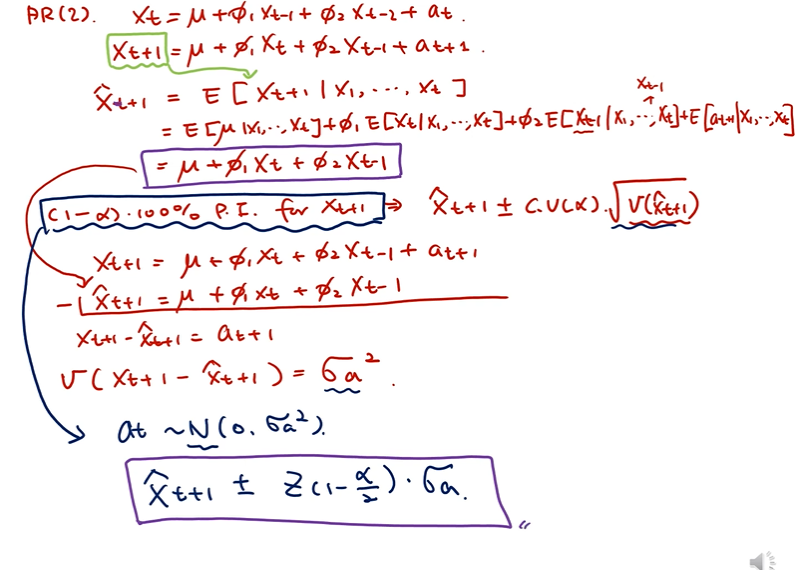 AR(2). Xt = μ + φ1 Xt-1 + φ2 Xt-2 + at.
Xt+1 = μ + φ1 Xt + φ2 Xt-1 + at+1.
X̂t+1 = E[Xt+1 | X1, ..., Xt]
Xt-1
= E[μ | X1, ..., Xt] + φ1 E[Xt | X1, ..., Xt] + φ2 E[Xt-1 | X1, ..., Xt] + E[at+1 | X1, ..., Xt]
= μ + φ1 Xt + φ2 Xt-1
(1-α)·100% P.I. for Xt+1 ⇒ X̂t+1 ± C.V(α)·√V(X̂t+1)
Xt+1 = μ + φ1 Xt + φ2 Xt-1 + at+1
- X̂t+1 = μ + φ1 Xt + φ2 Xt-1
Xt+1 - X̂t+1 = at+1
V(Xt+1 - X̂t+1) = σa².
at ~ N(0, σa²).
X̂t+1 ± Z(1-α/2)·σa.